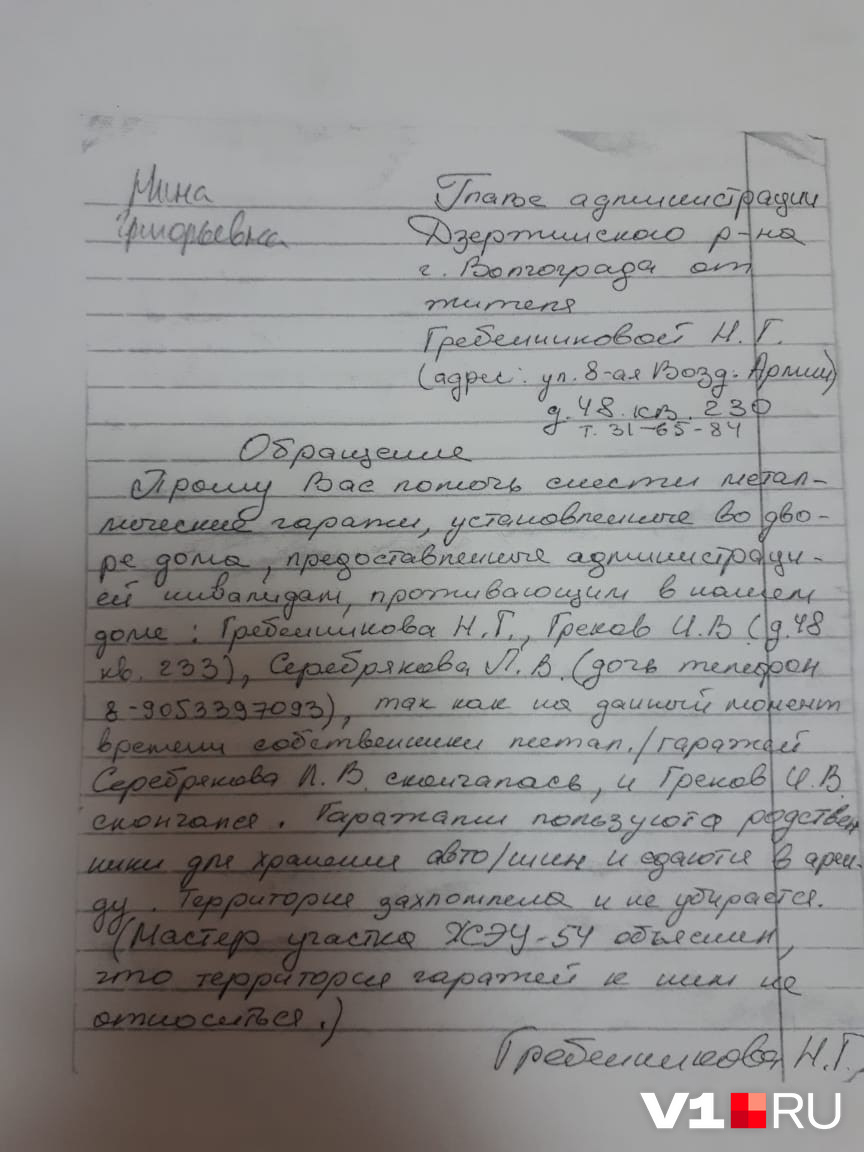 Нина
Григорьевна
Главе администрации
Дзержинского р-на
г. Волгограда от
жителя
Гребенниковой Н. Г.
(адрес: ул. 8-ая Возд. Армии)
д. 48. кв. 230
т. 31-65-84
Обращение
Прошу Вас помочь снести метал-
лические гаражи, установленные во дво-
ре дома, предоставленные администраци-
ей инвалидам, проживающим в нашем
доме: Гребенникова Н.Г., Греков И.В (д.48
кв. 233), Серебрякова Л.В. (дочь телефон
8-9053397093), так как на данный момент
времени собственники метал./гаражей
Серебрякова Л.В. скончалась, и Греков И.В.
скончался. Гаражами пользуются родствен
ники для хранения авто/шин и сдаются в арен-
ду. Территория захломлена и не убирается.
(Мастер участка ЖСЭУ-54 объяснил,
что территория гаражей к ним не
относиться.)
Гребенникова Н.Г.,
V1.RU